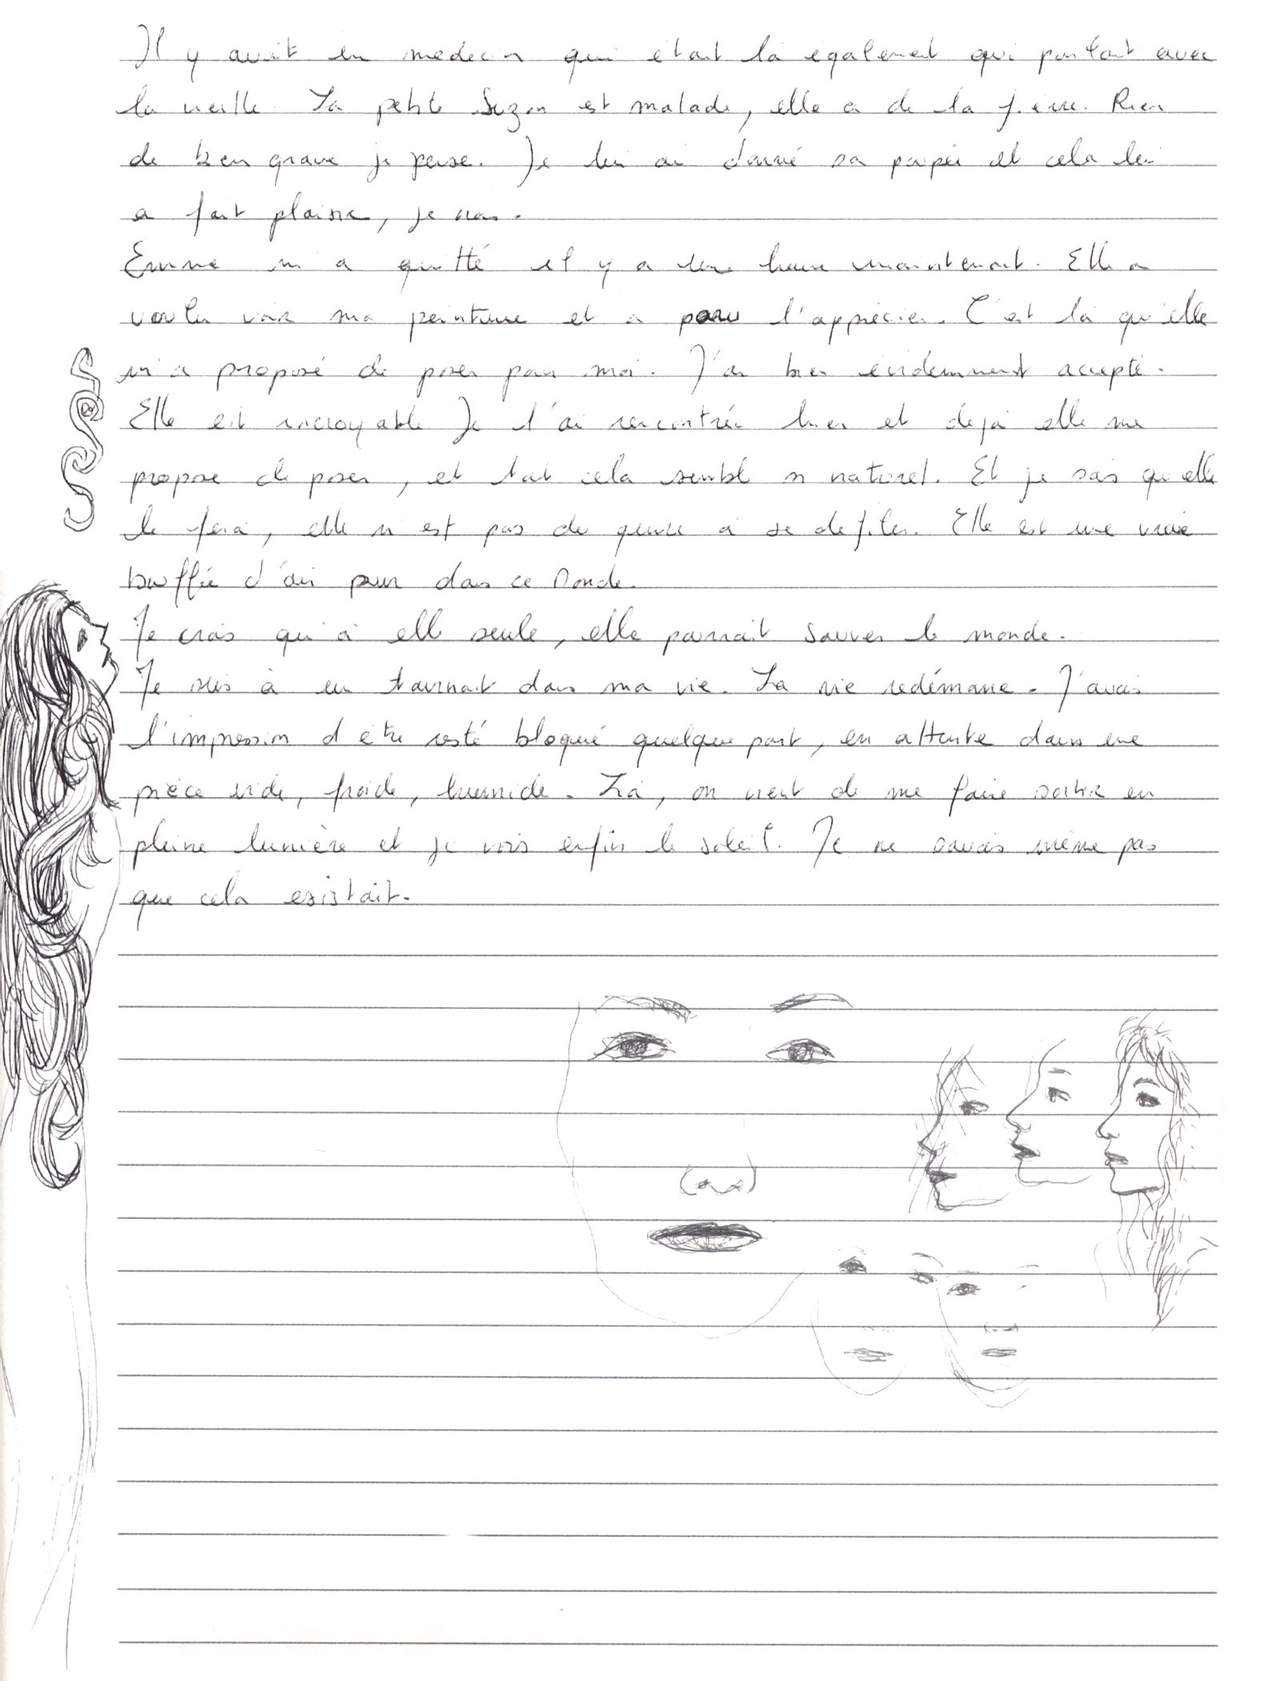 Il y avait un medecin qui était là également qui parlait avec
la vieille. La petite Suzon est malade, elle a de la fièvre. Rien
de bien grave je pense. Je lui ai donné sa poupée et cela lui
a fait plaisir, je crois.
Emma m'a quitté il y a une heure maintenant. Elle a
voulu voir ma peinture et a paru l'apprécier. C'est là qu'elle
m'a proposé de poser pour moi. J'ai bien évidemment accepté.
Elle est incroyable Je l'ai rencontrée hier et déjà elle me
propose de poser, et tout cela semble si naturel. Et je sais qu'elle
le fera, elle n'est pas du genre à se défiler. Elle est une vraie
bouffée d'air pur dans ce Monde.
Je crois qu'à elle seule, elle pourrait sauver le monde.
Je suis à un tournant dans ma vie. La vie redémarre. J'avais
l'impression d'être resté bloqué quelque part, en attente dans une
pièce vide, froide, humide. Là, on vient de me faire sortir en
pleine lumière et je vois enfin le soleil. Je ne savais même pas
que cela existait.